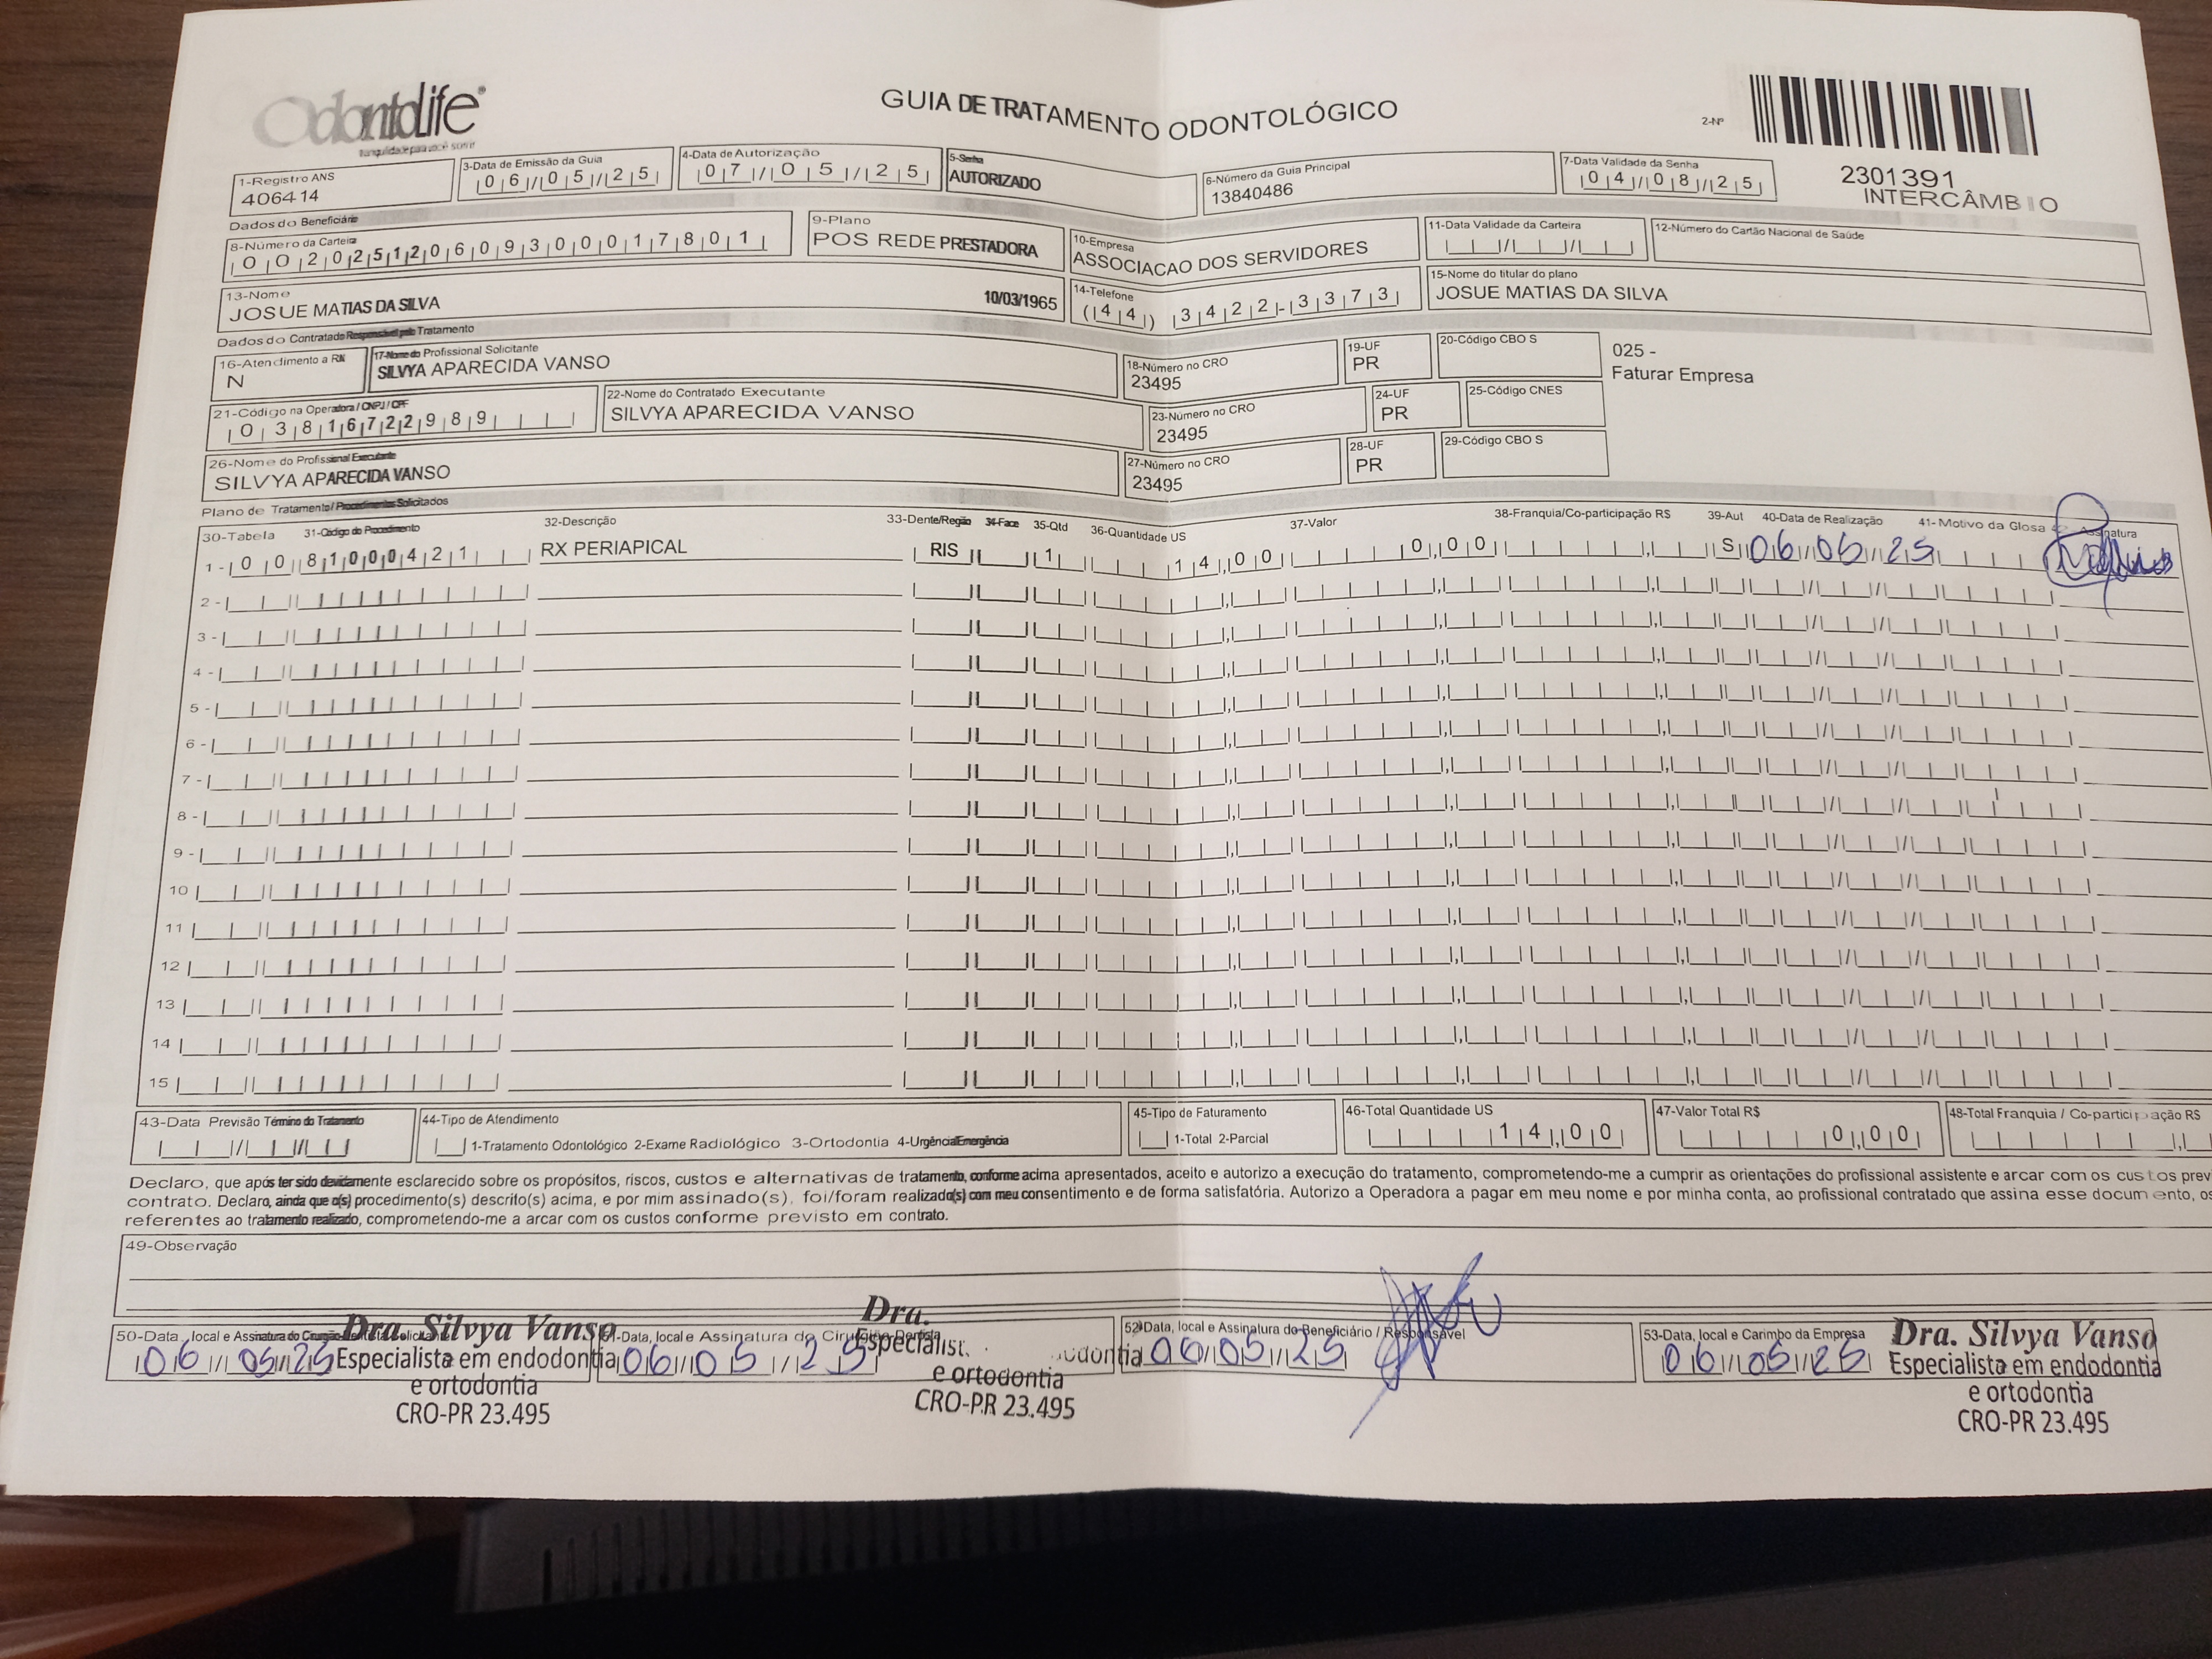 OdontoLife®
tranquilidade para você sorrir
GUIA DE TRATAMENTO ODONTOLÓGICO
2-Nº
2301391
INTERCÂMBIO
1-Registro ANS
406414
3-Data de Emissão da Guia
06/05/25
4-Data de Autorização
07/05/25
5-Senha
AUTORIZADO
6-Número da Guia Principal
13840486
7-Data Validade da Senha
04/08/25
Dados do Beneficiário
8-Número da Carteira
002025120609300017801
9-Plano
POS REDE PRESTADORA
10-Empresa
ASSOCIACAO DOS SERVIDORES
11-Data Validade da Carteira
12-Número do Cartão Nacional de Saúde
13-Nome
JOSUE MATIAS DA SILVA 10/03/1965
14-Telefone
(44) 3422-3373
15-Nome do titular do plano
JOSUE MATIAS DA SILVA
Dados do Contratado Responsável pelo Tratamento
16-Atendimento a RN
N
17-Nome do Profissional Solicitante
SILVYA APARECIDA VANSO
18-Número no CRO
23495
19-UF
PR
20-Código CBO S
025 -
Faturar Empresa
21-Código na Operadora / CNPJ / CPF
03816722989
22-Nome do Contratado Executante
SILVYA APARECIDA VANSO
23-Número no CRO
23495
24-UF
PR
25-Código CNES
26-Nome do Profissional Executante
SILVYA APARECIDA VANSO
27-Número no CRO
23495
28-UF
PR
29-Código CBO S
Plano de Tratamento / Procedimentos Solicitados
30-Tabela 31-Código do Procedimento 32-Descrição 33-Dente/Região 34-Face 35-Qtd 36-Quantidade US 37-Valor 38-Franquia/Co-participação R$ 39-Aut 40-Data de Realização 41- Motivo da Glosa 42- Assinatura
1 - 00 81000421 RX PERIAPICAL RIS 1 14,00 0,00 S 06/05/25
2 -
3 -
4 -
5 -
6 -
7 -
8 -
9 -
10
11
12
13
14
15
43-Data Previsão Término do Tratamento
44-Tipo de Atendimento
1-Tratamento Odontológico 2-Exame Radiológico 3-Ortodontia 4-Urgência/Emergência
45-Tipo de Faturamento
1-Total 2-Parcial
46-Total Quantidade US
14,00
47-Valor Total R$
0,00
48-Total Franquia / Co-participação R$
Declaro, que após ter sido devidamente esclarecido sobre os propósitos, riscos, custos e alternativas de tratamento, conforme acima apresentados, aceito e autorizo a execução do tratamento, comprometendo-me a cumprir as orientações do profissional assistente e arcar com os custos prev
contrato. Declaro, ainda que o(s) procedimento(s) descrito(s) acima, e por mim assinado(s), foi/foram realizado(s) com meu consentimento e de forma satisfatória. Autorizo a Operadora a pagar em meu nome e por minha conta, ao profissional contratado que assina esse documento, os
referentes ao tratamento realizado, comprometendo-me a arcar com os custos conforme previsto em contrato.
49-Observação
50-Data, local e Assinatura do Cirurgião-Dentista Solicitante
06/05/25
Dra. Silvya Vanso
Especialista em endodontia
e ortodontia
CRO-PR 23.495
51-Data, local e Assinatura do Cirurgião-Dentista
06/05/25
Dra.
Especialist
odontia
e ortodontia
CRO-PR 23.495
52-Data, local e Assinatura do Beneficiário / Responsável
06/05/25
53-Data, local e Carimbo da Empresa
06/05/25
Dra. Silvya Vanso
Especialista em endodontia
e ortodontia
CRO-PR 23.495